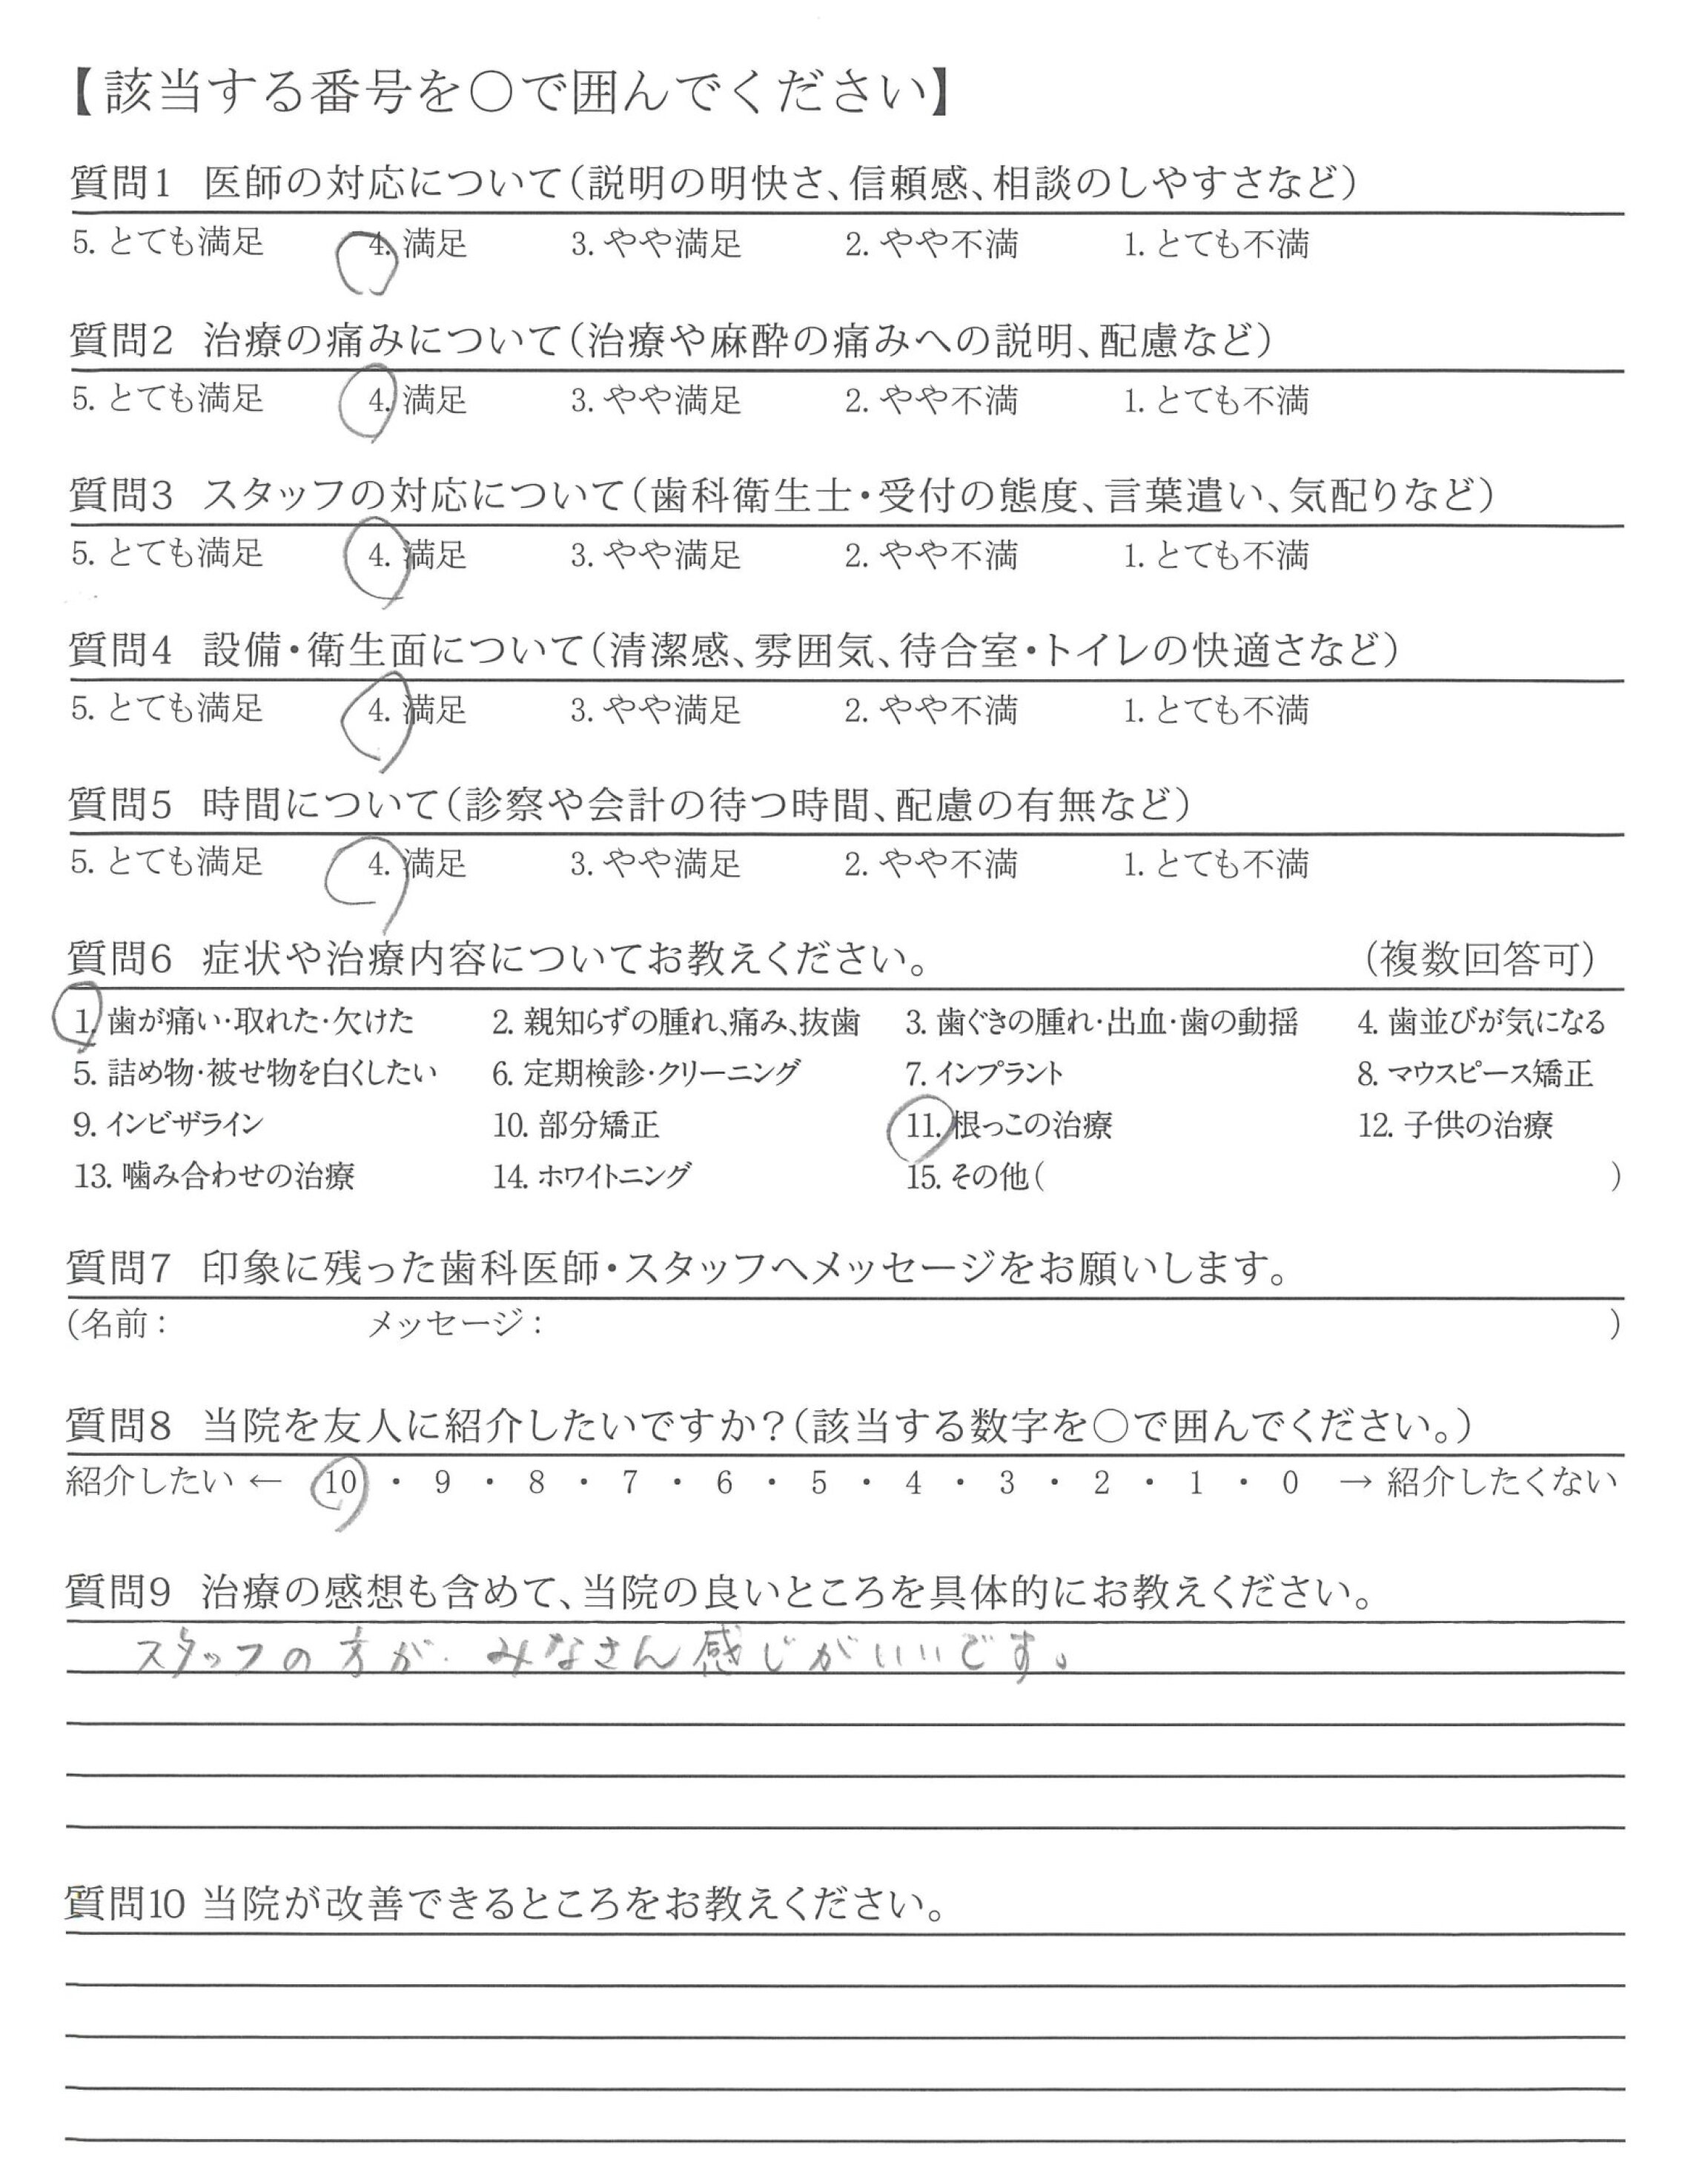 【該当する番号を○で囲んでください】
質問1 医師の対応について(説明の明快さ、信頼感、相談のしやすさなど)
5. とても満足 4. 満足 3. やや満足 2. やや不満 1. とても不満
質問2 治療の痛みについて(治療や麻酔の痛みへの説明、配慮など)
5. とても満足 4. 満足 3. やや満足 2. やや不満 1. とても不満
質問3 スタッフの対応について(歯科衛生士・受付の態度、言葉遣い、気配りなど)
5. とても満足 4. 満足 3. やや満足 2. やや不満 1. とても不満
質問4 設備・衛生面について(清潔感、雰囲気、待合室・トイレの快適さなど)
5. とても満足 4. 満足 3. やや満足 2. やや不満 1. とても不満
質問5 時間について(診察や会計の待つ時間、配慮の有無など)
5. とても満足 4. 満足 3. やや満足 2. やや不満 1. とても不満
質問6 症状や治療内容についてお教えください。 (複数回答可)
1. 歯が痛い・取れた・欠けた 2. 親知らずの腫れ、痛み、抜歯 3. 歯ぐきの腫れ・出血・歯の動揺 4. 歯並びが気になる
5. 詰め物・被せ物を白くしたい 6. 定期検診・クリーニング 7. インプラント 8. マウスピース矯正
9. インビザライン 10. 部分矯正 11. 根っこの治療 12. 子供の治療
13. 噛み合わせの治療 14. ホワイトニング 15. その他( )
質問7 印象に残った歯科医師・スタッフへメッセージをお願いします。
(名前: メッセージ: )
質問8 当院を友人に紹介したいですか?(該当する数字を○で囲んでください。)
紹介したい ← 10 ・ 9 ・ 8 ・ 7 ・ 6 ・ 5 ・ 4 ・ 3 ・ 2 ・ 1 ・ 0 → 紹介したくない
質問9 治療の感想も含めて、当院の良いところを具体的にお教えください。
スタッフの方が、みなさん感じがいいです。
質問10 当院が改善できるところをお教えください。